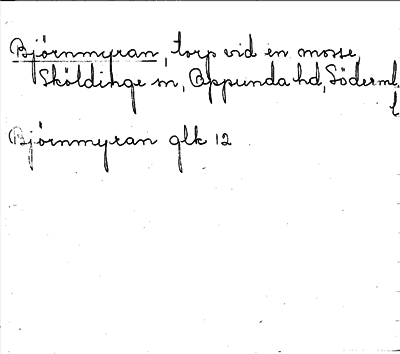 Björnmyran, torp vid en mosse,
Sköldinge sn, Oppunda hd, Söderml.
l
Björnmyran glk 12